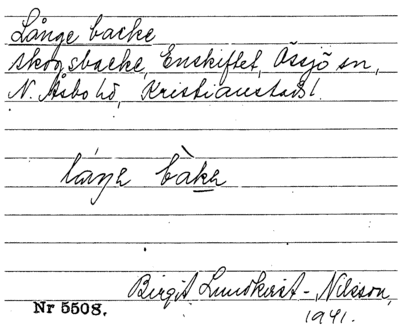 Långe backe
skogsbacke, Enskiftet, Össjö sn,
N. Åsbo hd, Kristianstads l.
láŋə bàkə
Birgit Lundkvist-Nilsson,
1941.
Nr 5508.